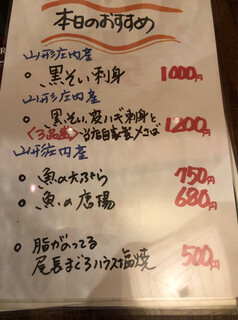 本日のおすすめ
山形庄内産
• 黒そい刺身 1000円
山形庄内産
• 黒そい、皮ハギ刺身と
〈3品盛〉当店自家製〆さば 1200円
山形庄内産
• 魚の天ぷら 750円
• 魚の唐揚 680円
• 脂がのってる
尾長まぐろハラス塩焼 500円